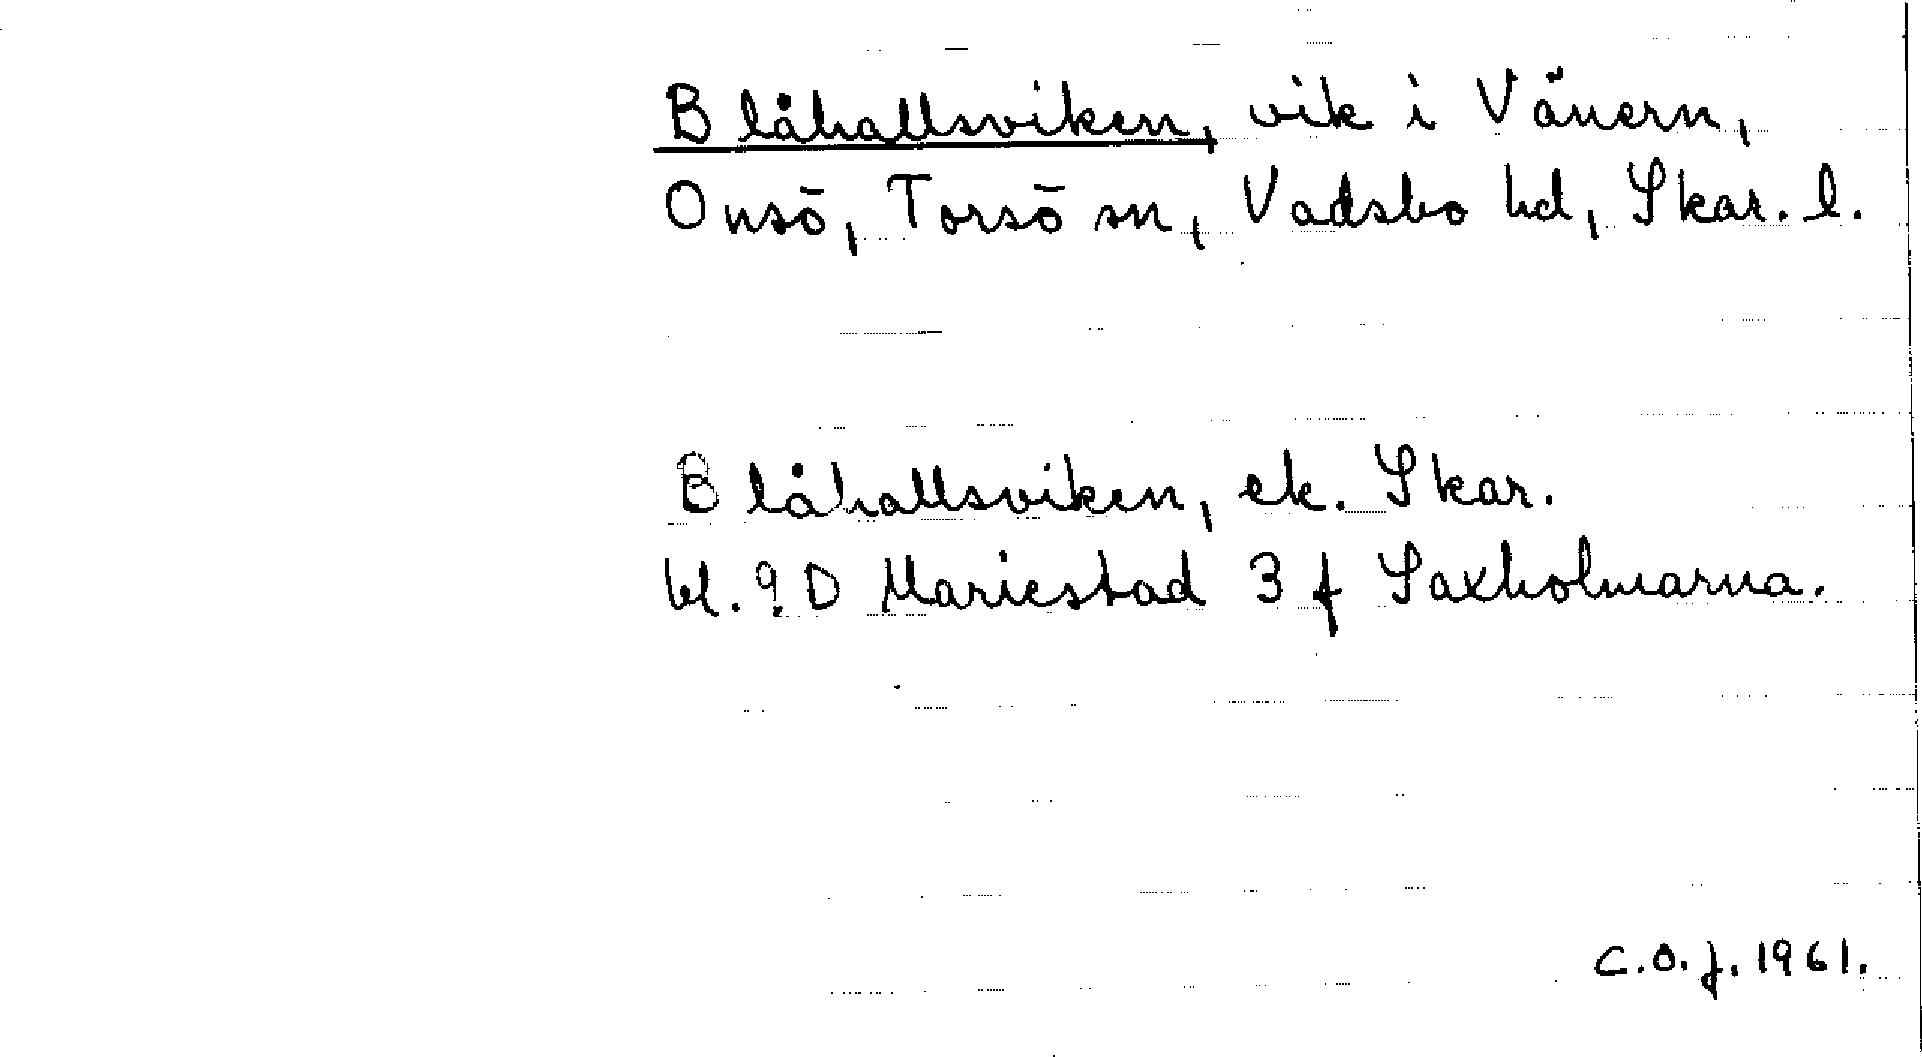 Blåhallsviken, vik i Vänern,
Onsö, Torsö sn, Vadsbo hd, Skar. l.
Blåhallsviken, ek. Skar.
bl. 9D Mariestad 3 f Saxholmarna.
C.O.J. 1961.